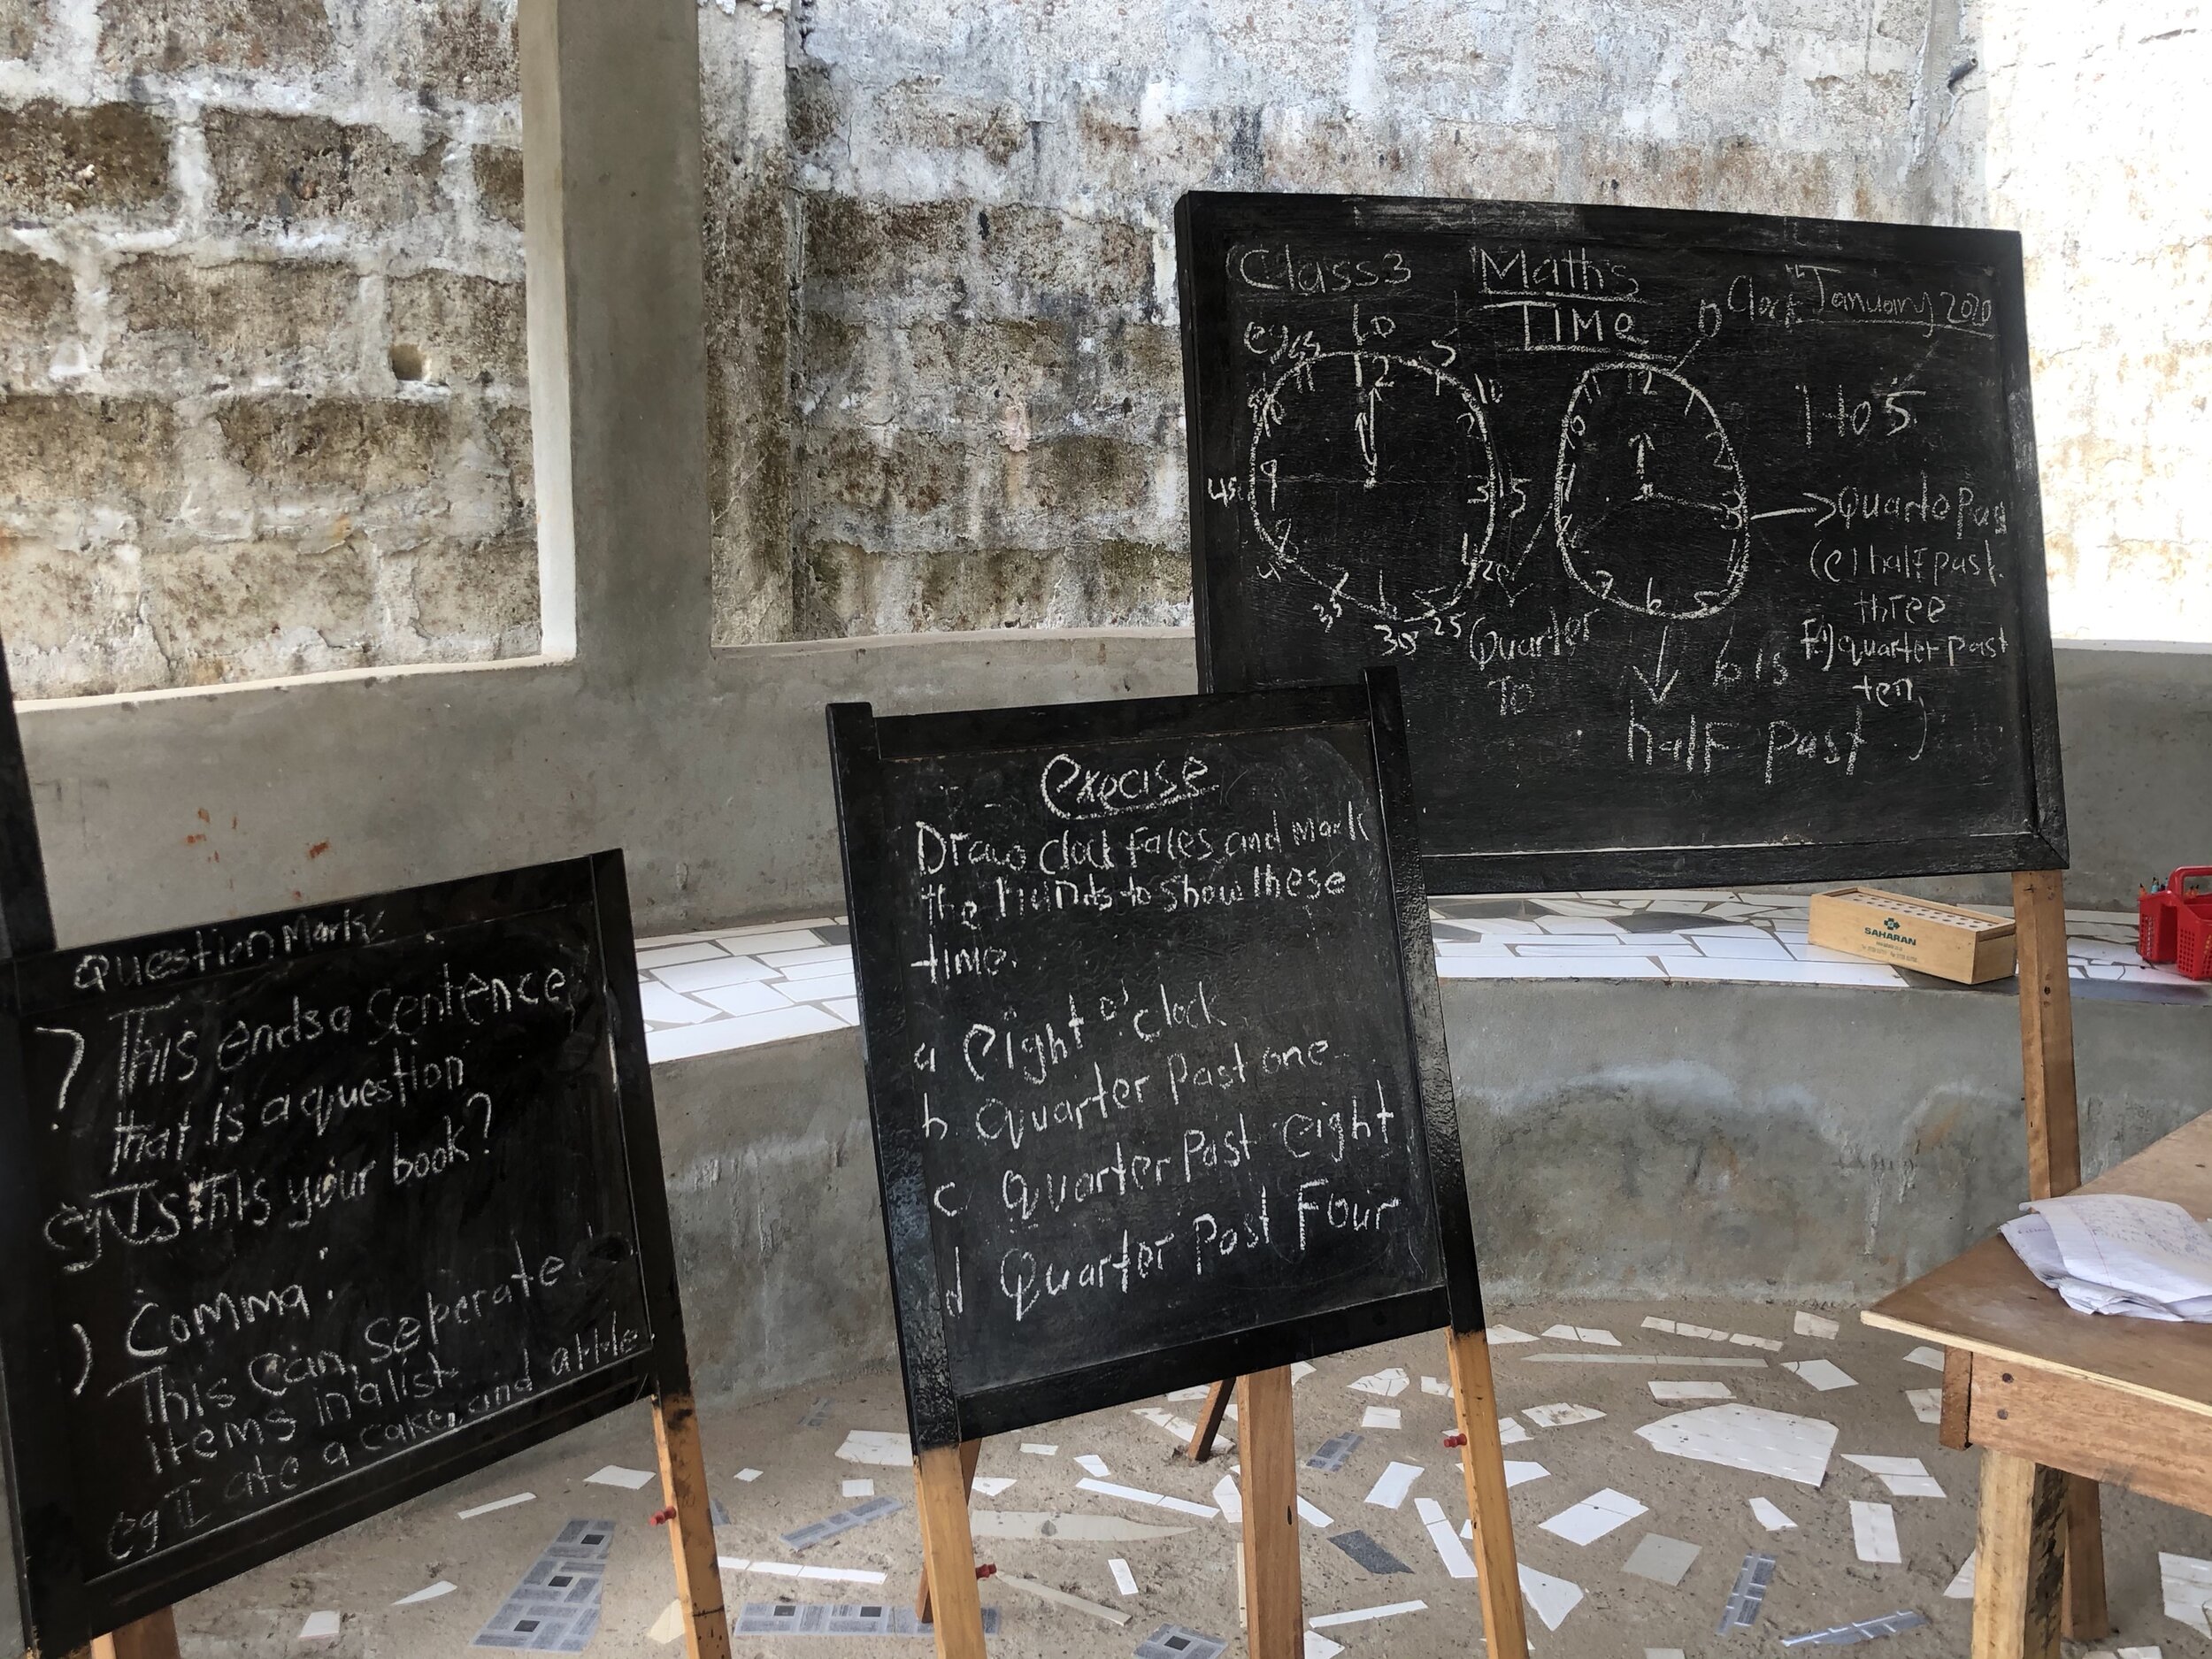 Question Mark
? This ends a sentence
that is a question
eg Is this your book?
Comma :
) This can seperate
items in a list
eg I ate a cake, and a
Execise
Draw clock faces and mark
the hands to show these
time.
a eight o' clock
b quarter past one
c quarter past eight
d Quarter past Four
Class 3 Maths
January 2020
TIME
eg
0
55 5
11 12 1
10
2
45 9 3 15
8 4 20
35 7 6
30 25
Quarter
To
O Clock
11 12 1
2
3
7 6 5
1 to 5
Quarto Pas
(e) half past
three
F) quarter past
ten
6 is
half past
SAHARAN